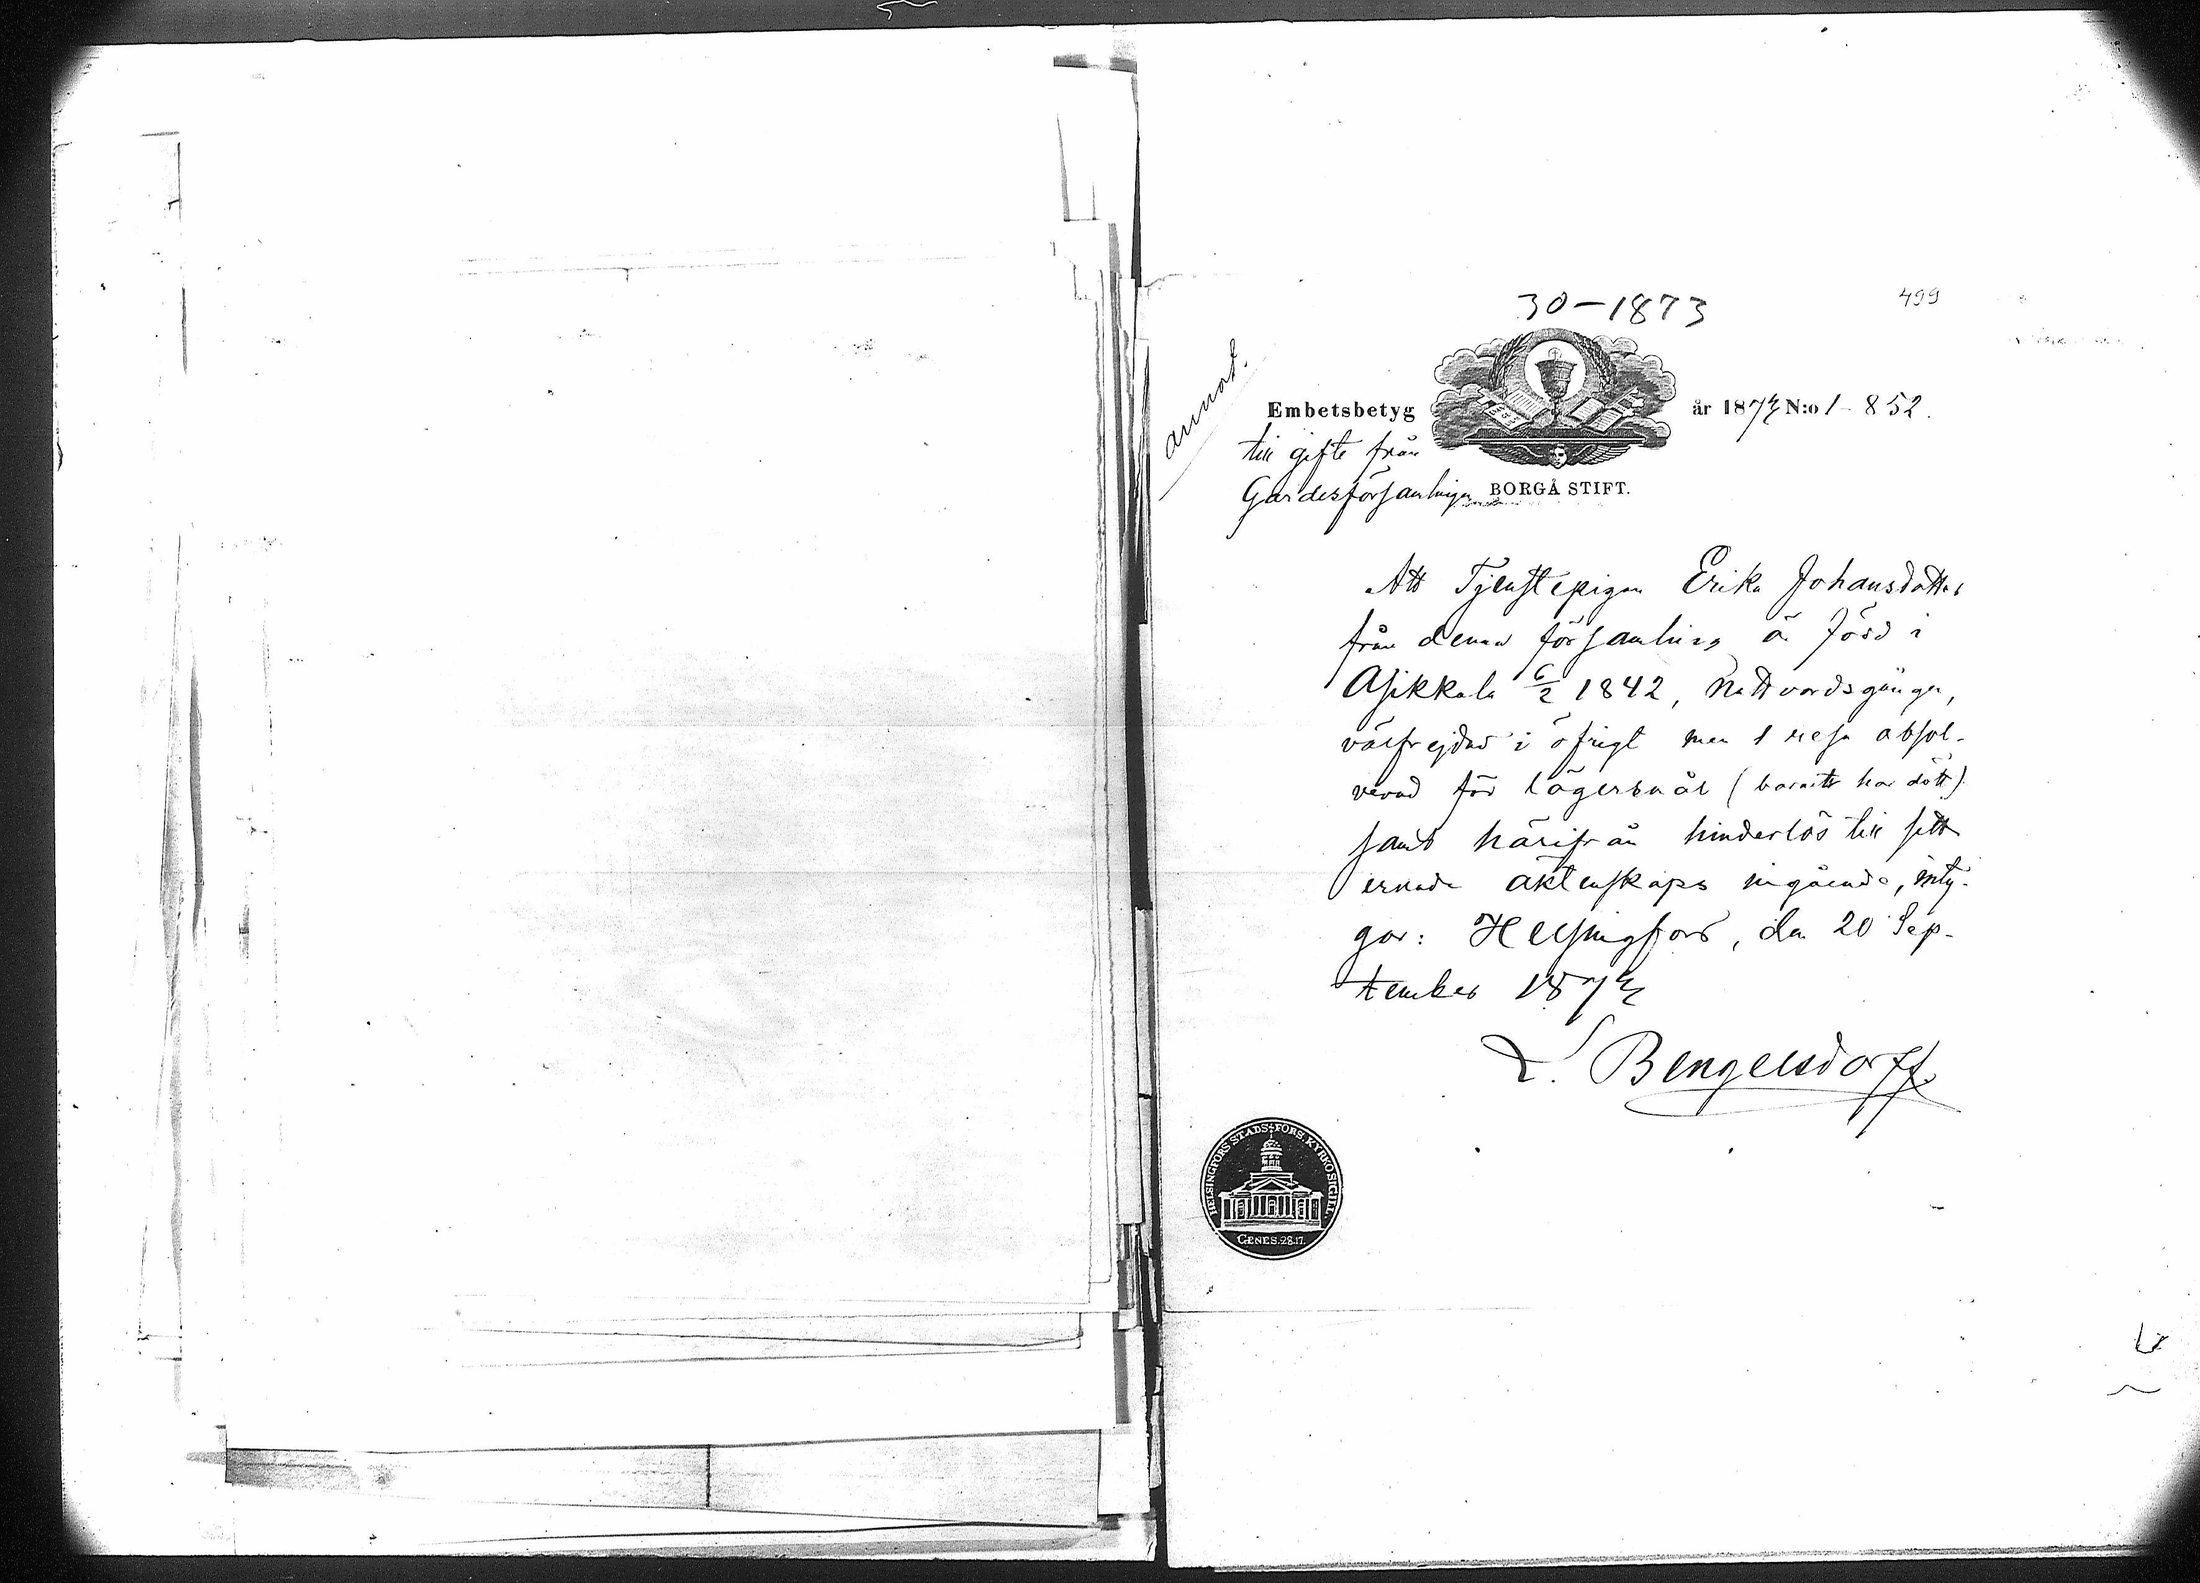 30-1873
499
annot.
Embetsbetyg år 1872 N:o 1-852.
till gifte från
Gardesförsamlingen BORGÅ STIFT.
Att Tjenstepigan Erika Johansdotter
från denna församling är född i
Asikkala 6/2 1842, Nattvardsgången,
välfrejdad i öfrigt men 1 resa absol-
verad för lägersmål (barnet har dött)
samt härifrån hinderlös till sitt
ernade äktenskaps ingående, inty-
gar: Helsingfors, den 20 Sep-
tember 1872
L. Bengelsdorff
HELSINGFORS STADS FÖRS. KYRKOSIGILL.
GENES. 28.17.